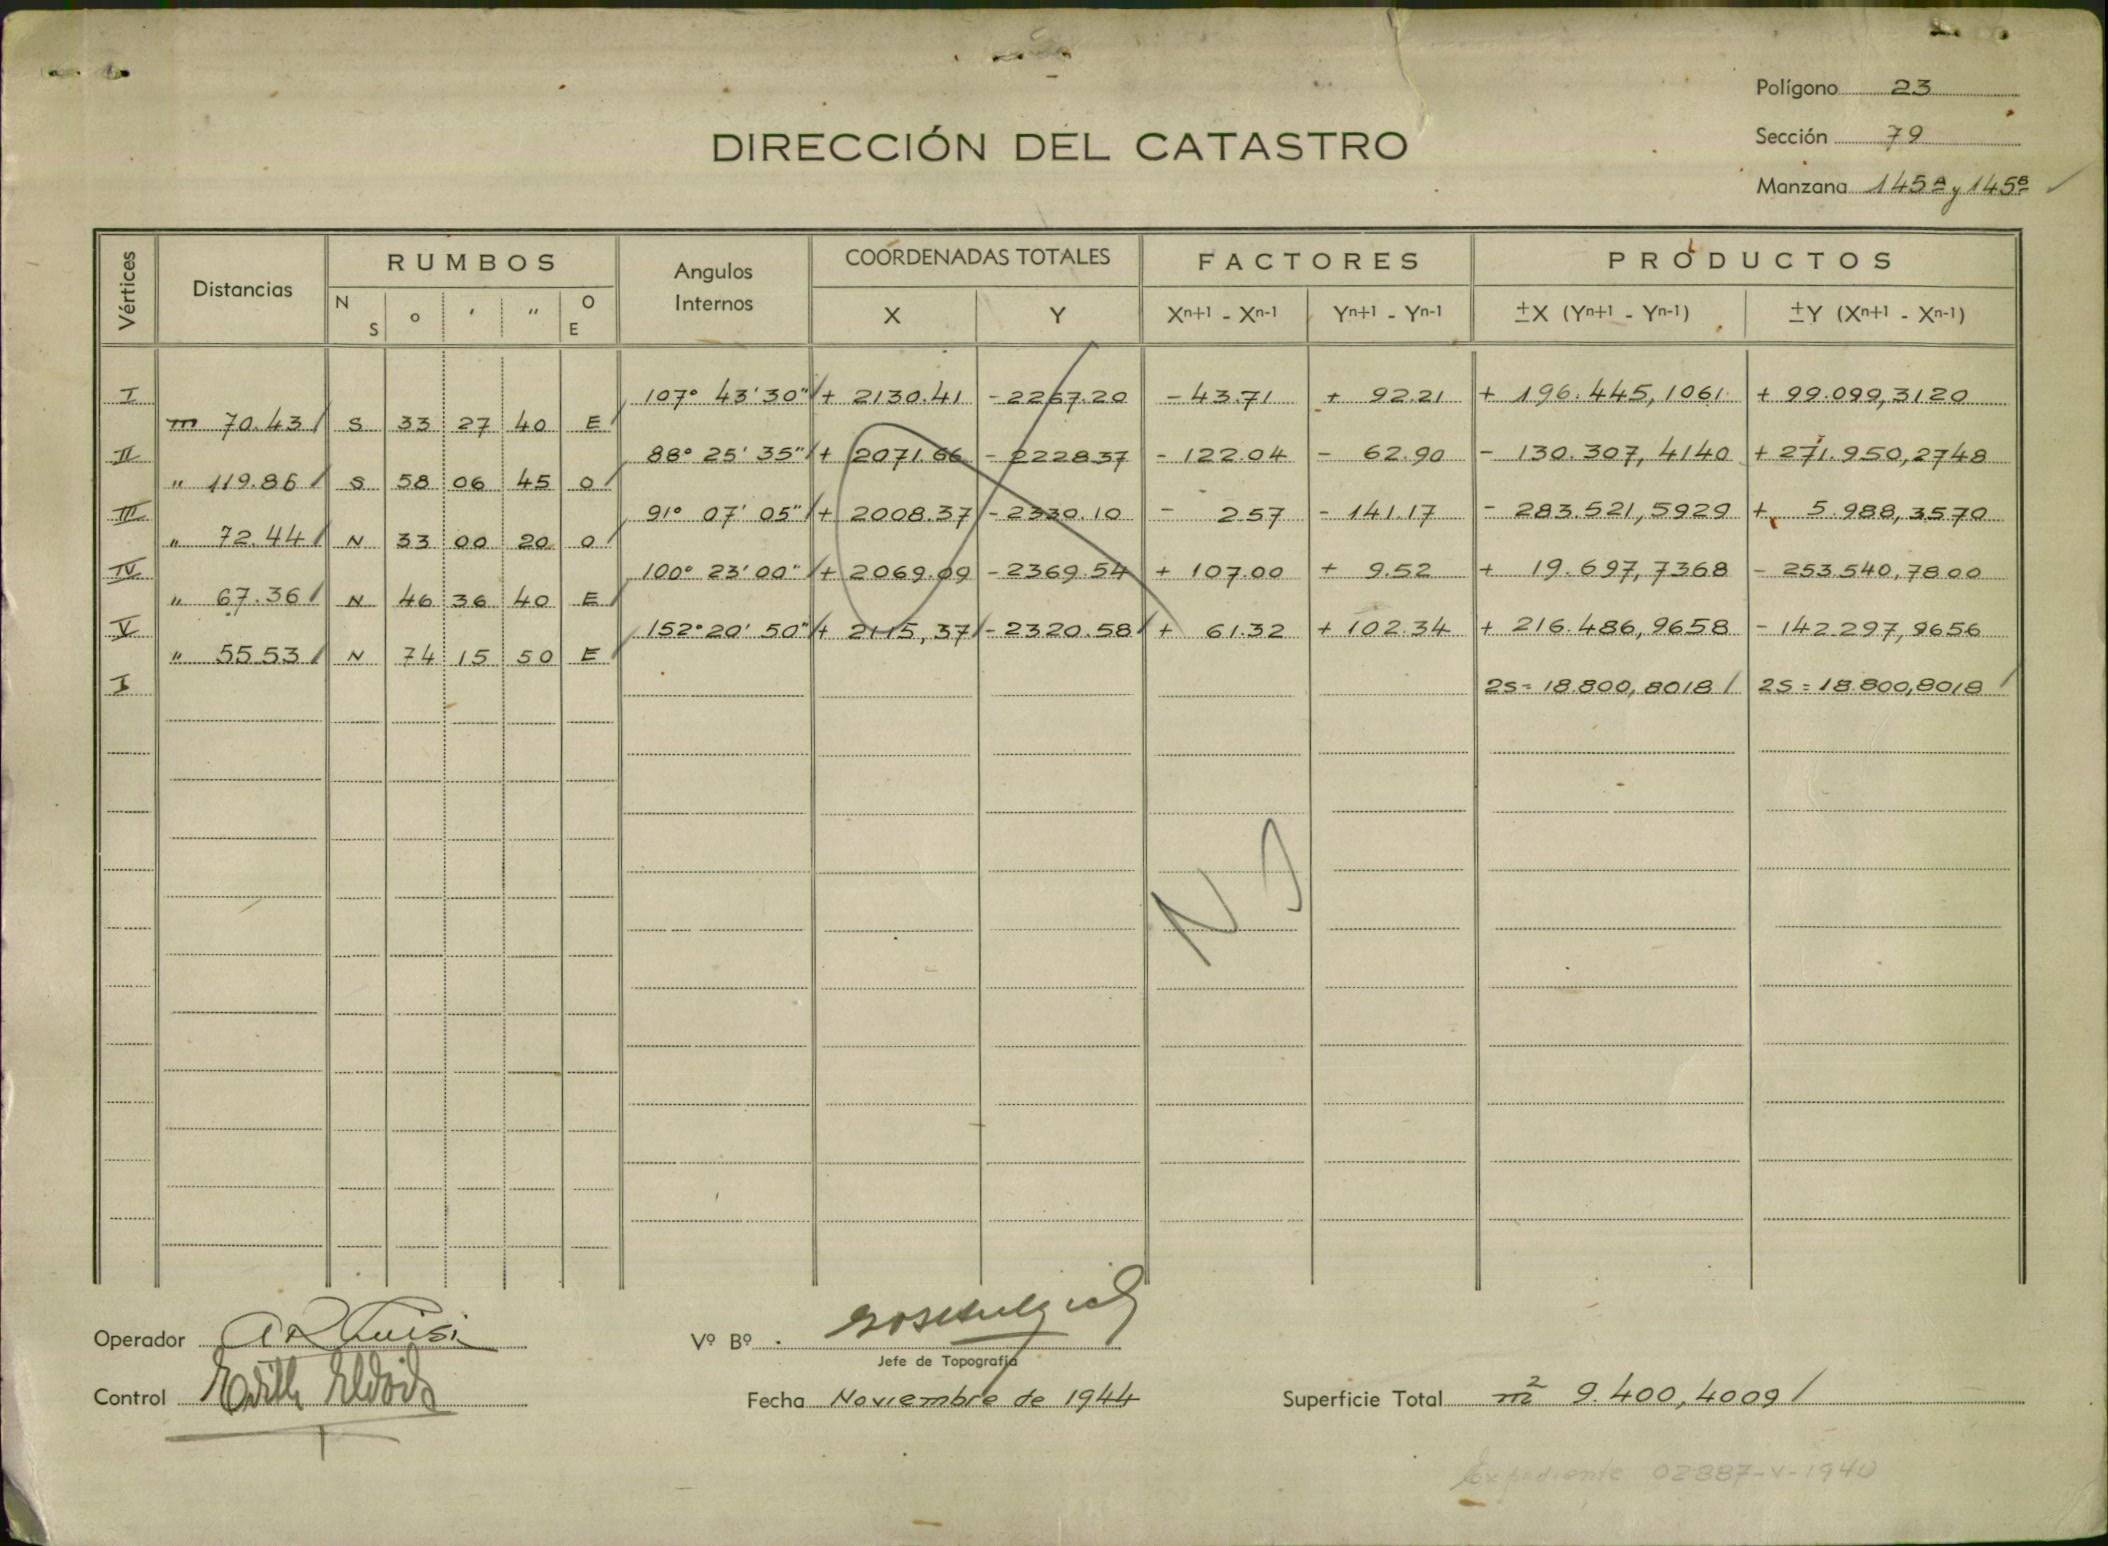 Polígono 23
DIRECCIÓN DEL CATASTRO
Sección 79
Manzana 145A y 145B
Vértices Distancias RUMBOS Angulos Internos COORDENADAS TOTALES FACTORES PRODUCTOS
N S o ' " O E X Y Xn+1 - Xn-1 Yn+1 - Yn-1 ±X (Yn+1 - Yn-1) ±Y (Xn+1 - Xn-1)
I 107° 43' 30" + 2130.41 - 2267.20 - 43.71 + 92.21 + 196.445,1061 + 99.099,3120
m 70.43 S 33 27 40 E
II 88° 25' 35" + 2071.66 - 2228.37 - 122.04 - 62.90 - 130.307,4140 + 271.950,2748
" 119.86 S 58 06 45 O
III 91° 07' 05" + 2008.37 - 2330.10 - 2.57 - 141.17 - 283.521,5929 + 5.988,3570
" 72.44 N 33 00 20 O
IV 100° 23' 00" + 2069.09 - 2369.54 + 107.00 + 9.52 + 19.697,7368 - 253.540,7800
" 67.36 N 46 36 40 E
V 152° 20' 50" + 2115,37 - 2320.58 + 61.32 + 102.34 + 216.486,9658 - 142.297,9656
" 55.53 N 74 15 50 E
I 2s = 18.800,8018 2s = 18.800,8018
Operador
Vº Bº
Jefe de Topografía
Control
Fecha Noviembre de 1944
Superficie Total m2 9.400,4009
Expediente 02887-V-1940